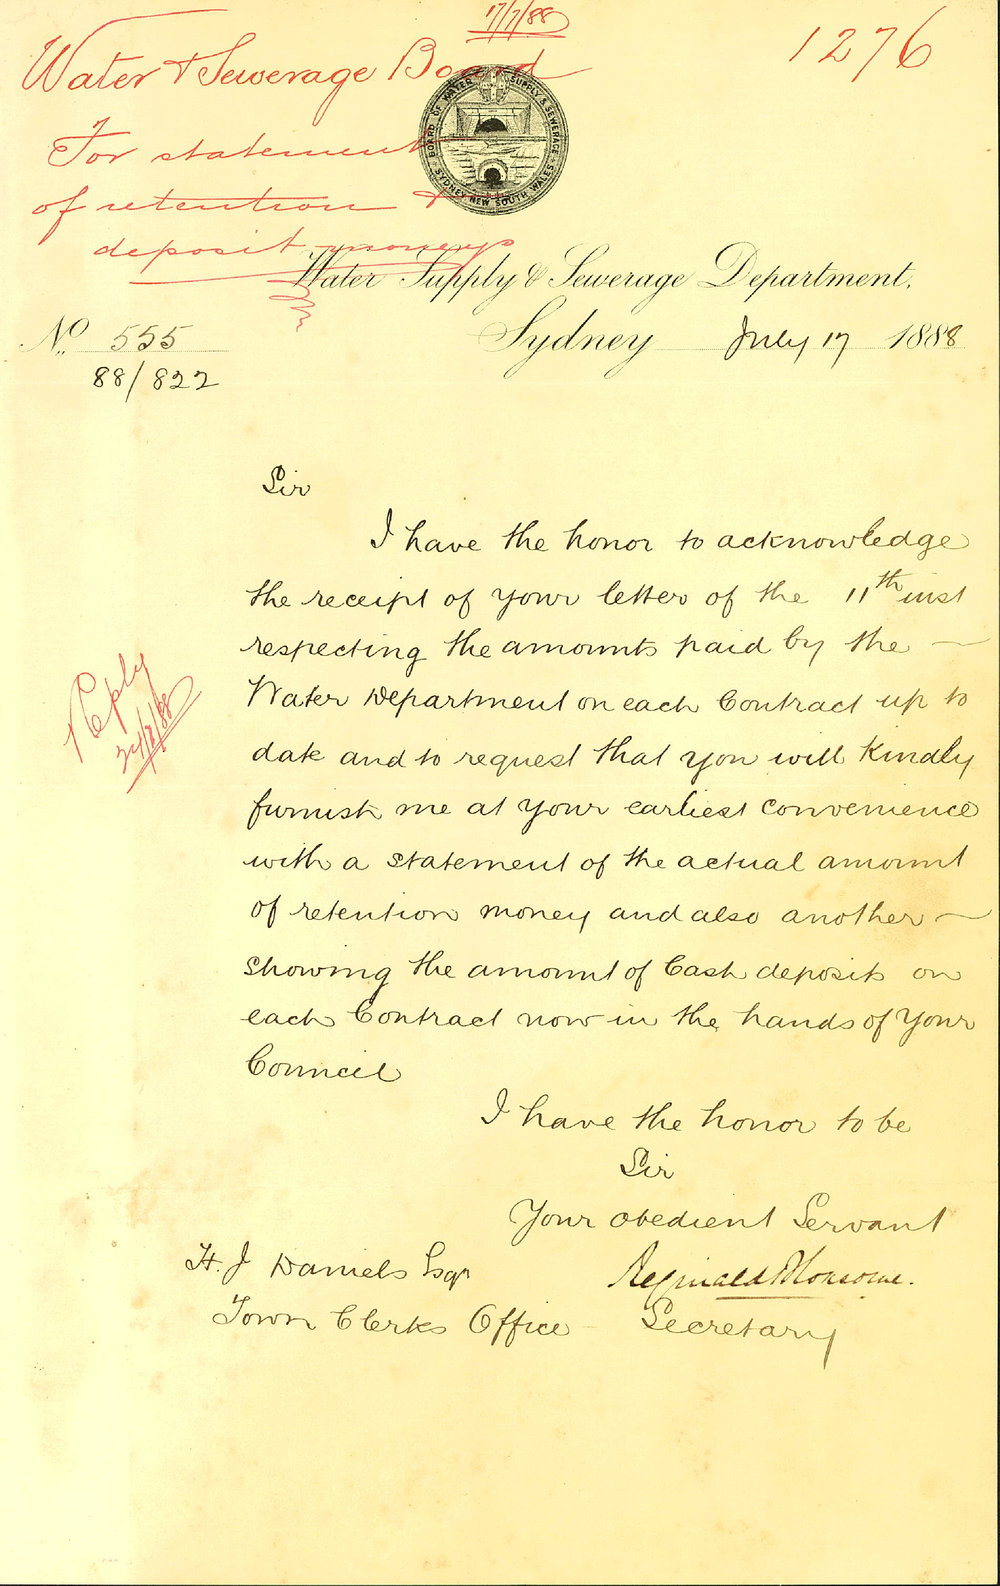 17/7/88
1276
Water & Sewerage Board
For statement
of retention &
deposit moneys
BOARD OF WATER SUPPLY & SEWERAGE
SYDNEY NEW SOUTH WALES
Water Supply & Sewerage Department.
No. 555
88/822
Sydney July 17 1888
Sir
I have the honor to acknowledge
the receipt of your letter of the 11th inst
respecting the amounts paid by the
Water Department on each Contract up to
date and to request that you will kindly
furnish me at your earliest convenience
with a statement of the actual amount
of retention money and also another
showing the amount of Cash deposits on
each Contract now in the hands of your
Council
Reply
I have the honor to be
Sir
Your obedient Servant
H. J Daniels Esqr
Reginald
Town Clerks Office
Secretary